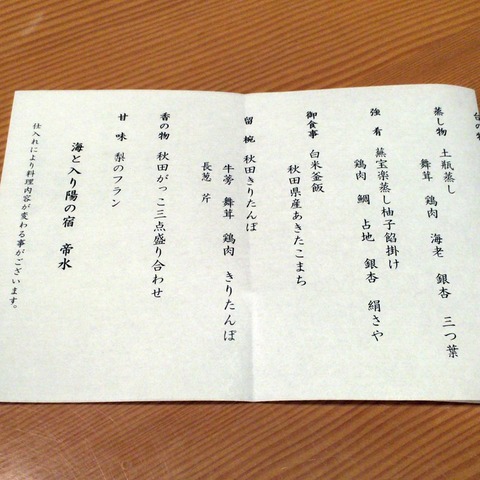 台の物
蒸し物　土瓶蒸し
舞茸　鶏肉　海老　銀杏　三つ葉
強　肴　蕪宝楽蒸し柚子餡掛け
鶏肉　鯛　占地　銀杏　絹さや
御食事　白米釜飯
秋田県産あきたこまち
留　椀　秋田きりたんぽ
牛蒡　舞茸　鶏肉　きりたんぽ
長葱　芹
香の物　秋田がっこ三点盛り合わせ
甘　味　梨のフラン
海と入り陽の宿　帝水
仕入れにより料理内容が変わる事がございます。